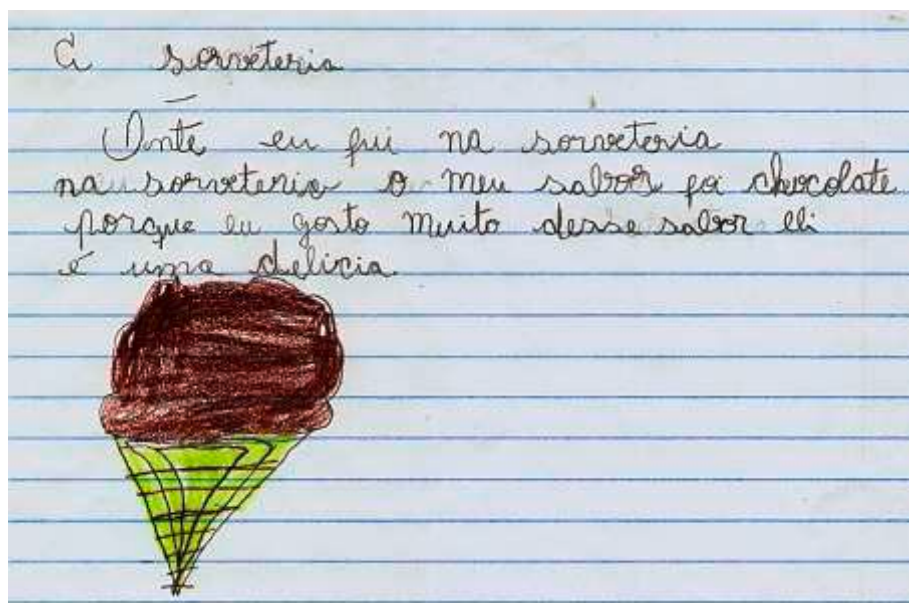 A sorveteria
Onte eu fui na sorveteria
na sorveteria o meu sabor foi chocolate
porque eu gosto muito desse sabor eli
é uma delicia